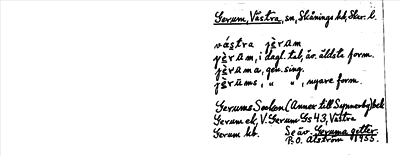 Gerum, Västra, sn, Skånings hd, Skar. l.
västra jèram
jèram, i dagl. tal, äv. äldsta form.
jèrama, gen. sing.
jèrums, " " , nyare form.
Gerums Socken (Annex till Synnerby) bek
Gerum ek, V. Gerum Gs 43, Västra
Gerum kb. Se äv. Geruma getter
P.O. Alström 1935.